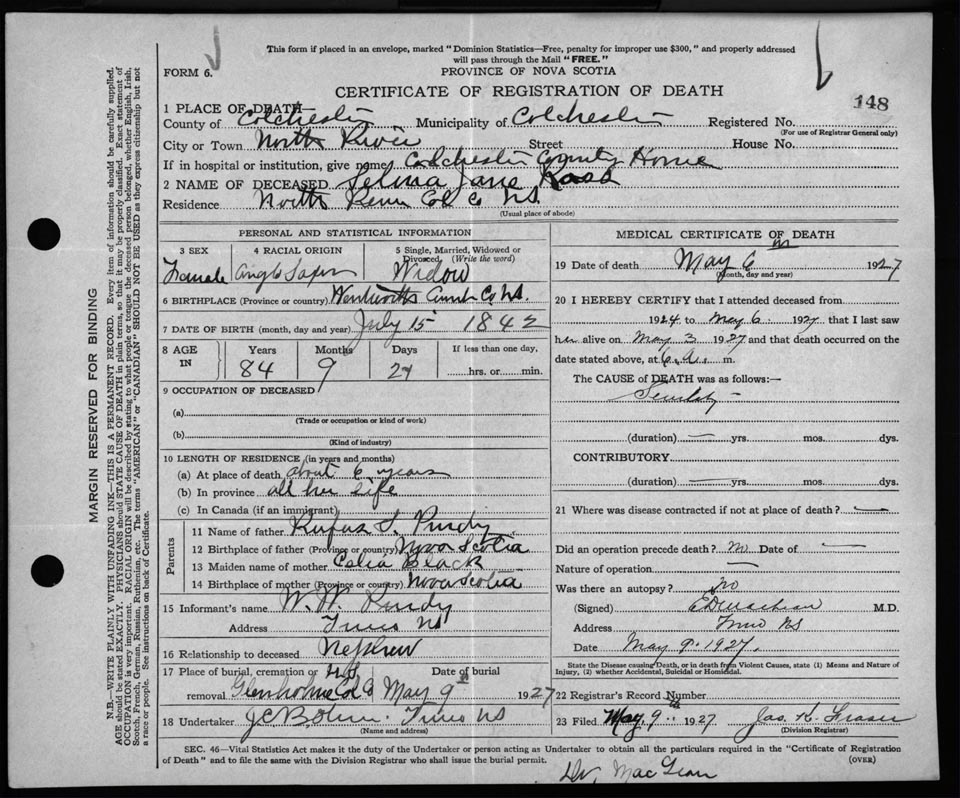 This form if placed in an envelope, marked "Dominion Statistics—Free, penalty for improper use $300," and properly addressed
will pass through the Mail "FREE."
FORM 6.
PROVINCE OF NOVA SCOTIA
CERTIFICATE OF REGISTRATION OF DEATH
148
1 PLACE OF DEATH—
County of Colchester Municipality of Colchester Registered No.
(For use of Registrar General only)
City or Town North River Street House No.
If in hospital or institution, give name Colchester County Home
2 NAME OF DECEASED Selma Jane Ross
Residence North River Col Co NS.
(Usual place of abode)
PERSONAL AND STATISTICAL INFORMATION
3 SEX 4 RACIAL ORIGIN 5 Single, Married, Widowed or Divorced, (Write the word)
Female Anglo Saxon Widow
6 BIRTHPLACE (Province or country) Wentworth Cumb Co NS.
7 DATE OF BIRTH (month, day and year) July 15 1842
8 AGE IN Years Months Days If less than one day,
84 9 21 hrs. or min.
9 OCCUPATION OF DECEASED
(a)
(Trade or occupation or kind of work)
(b)
(Kind of industry)
10 LENGTH OF RESIDENCE (in years and months)
(a) At place of death about 6 years
(b) In province all her life
(c) In Canada (if an immigrant)
Parents
11 Name of father Rufus S. Purdy
12 Birthplace of father (Province or country) Nova Scotia
13 Maiden name of mother Celia Black
14 Birthplace of mother (Province or country) Nova Scotia
15 Informant's name W. W. Purdy
Address Truro NS
16 Relationship to deceased Nephew
17 Place of burial, cremation or removal Glenholme Col Co NS Date of burial May 9 1927
18 Undertaker Truro NS
(Name and address)
MEDICAL CERTIFICATE OF DEATH
19 Date of death May 6 th 1927
(Month, day and year)
20 I HEREBY CERTIFY that I attended deceased from
1924 to May 6. 1927 that I last saw
her alive on May 3 1927 and that death occurred on the
date stated above, at 6.a. m.
The CAUSE of DEATH was as follows:—
Senility —
(duration) — yrs. mos. dys.
CONTRIBUTORY.
(duration) — yrs. mos. dys.
21 Where was disease contracted if not at place of death? —
Did an operation precede death? no Date of —
Nature of operation —
Was there an autopsy? no
(Signed) M.D.
Address Truro NS
Date May 9. 1927.
State the Disease causing Death, or in death from Violent Causes, state (1) Means and Nature of
Injury, (2) whether Accidental, Suicidal or Homicidal.
22 Registrar's Record Number
23 Filed May 9 th 1927 Jas. K. Fraser
(Division Registrar)
SEC. 46—Vital Statistics Act makes it the duty of the Undertaker or person acting as Undertaker to obtain all the particulars required in the "Certificate of Registration
of Death" and to file the same with the Division Registrar who shall issue the burial permit.
(OVER)
Dr. MacLean
MARGIN RESERVED FOR BINDING
N.B.—WRITE PLAINLY WITH UNFADING INK—THIS IS A PERMANENT RECORD. Every item of information should be carefully supplied.
AGE should be stated EXACTLY. PHYSICIANS should STATE CAUSE OF DEATH in plain terms, so that it may be properly classified. Exact statement of
OCCUPATION is very important. RACIAL ORIGIN will be described by stating to what people or tongue the deceased person belonged, whether English, Irish,
Scotch, French, German, Russian, Ruthenian, etc. The terms "AMERICAN" or "CANADIAN" SHOULD NOT BE USED as they express citizenship but not
a race or people. See instructions on back of Certificate.